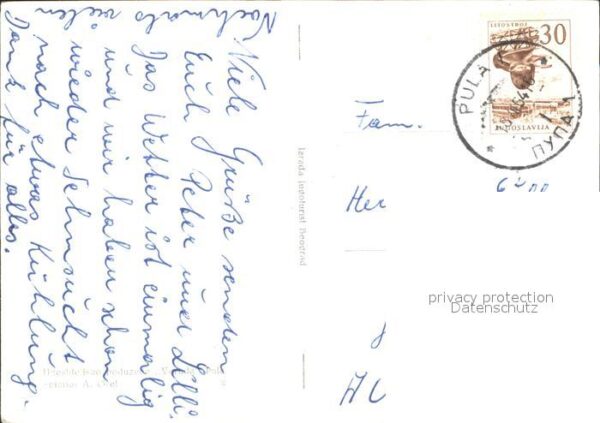 Viele Grüße senden
Euch Peter und Lilli.
Das Wetter ist einmalig
und wir haben schon
wieder Sehnsucht
nach etwas Kühlung.
Nochmals vielen
Dank für alles.
Izrada Jugoturist Beograd
LITOSTROJ
30
JUGOSLAVIJA
PULA
1
ПУЛА 1
Fam.
Her
privacy protection
Datenschutz